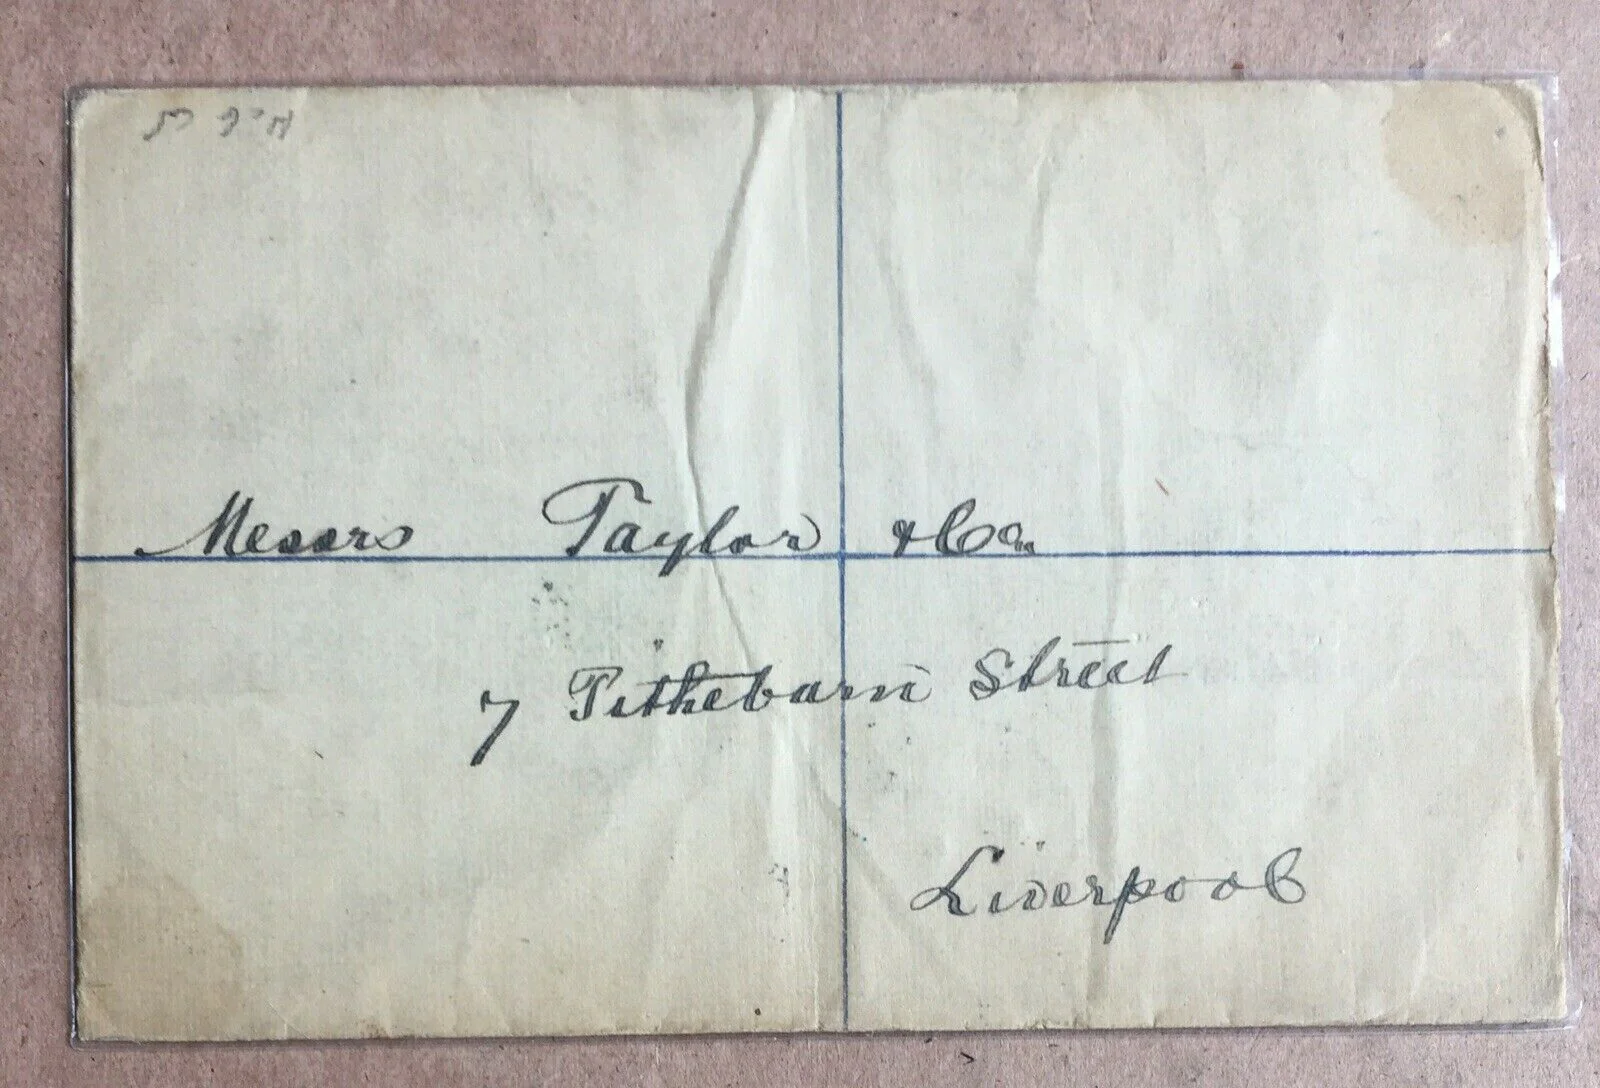 Messrs Taylor & Co.
7 Tithebarn Street
Liverpool